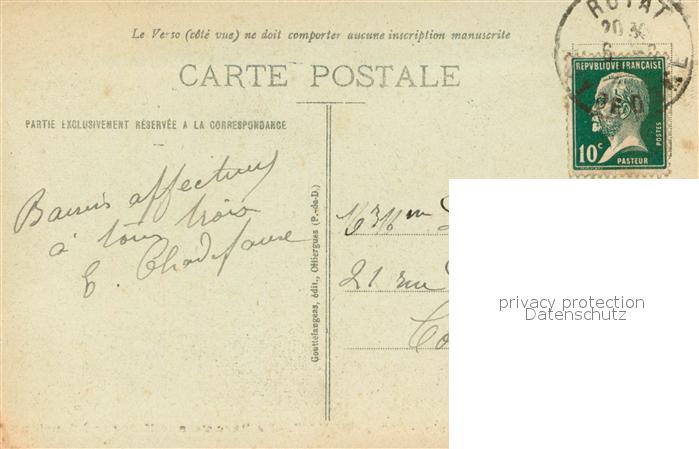 Le Verso (côté vue) ne doit comporter aucune inscription manuscrite
CARTE POSTALE
PARTIE EXCLUSIVEMENT RÉSERVÉE A LA CORRESPONDANCE
ROYAT
20 30
6
REPVBLIQUE FRANÇAISE
10c
POSTES
PASTEUR
Baisers affectueux
à tous trois
E. Chadefaux
Gouttefangeas, édit., Olliergues (P.-de-D.)
21 rue
privacy protection
Datenschutz